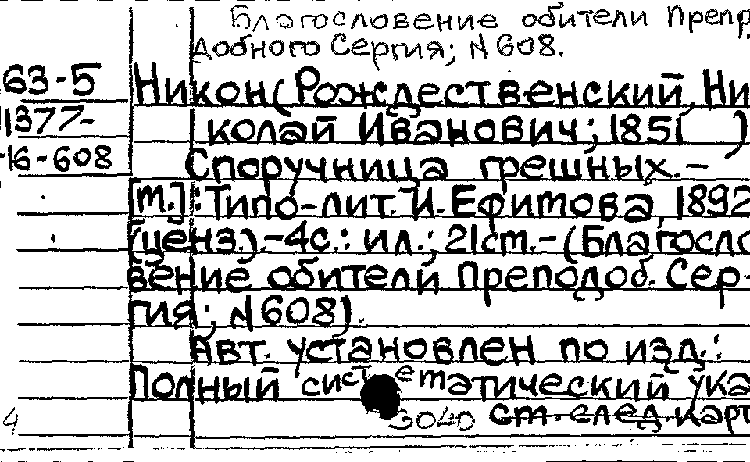 Благословение обители Препр
добного Сергия; N 608.
63-5 Никон (Рождественский, Ни
1377- колай Иванович; 1851 )
-16-608 Споручница грешных.-
[м.]: Типо-лит. И. Ефимова, 1892
(ценз.).-4с.: ил.; 21см.-(Благосло
вение обители Преподоб. Сер-
гия; N 608).
Авт. установлен по изд.:
Полный систематический ука
4 3040 см. след. карт